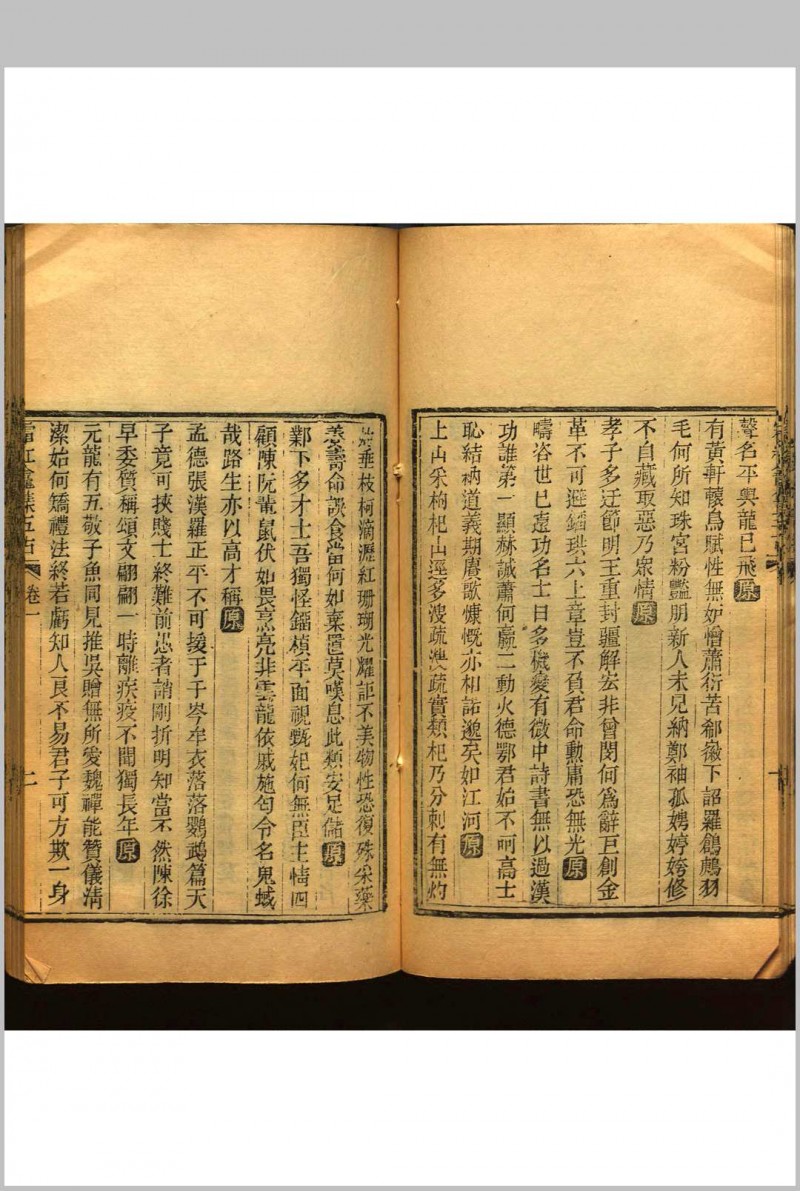 聲名平興龍已飛原
有黃軒轅鳥賦性無妒憎蕭衍苦郗徽下詔羅鶬鷓羽
毛何所知珠宮粉豔朋新人未見納鄭袖孤娉婷姱修
不自藏取惡乃衆情原
孝子多迂節明王重封疆解宏非曾閔何爲辭巨創金
革不可避鎦珙六上章豈不負君命勳庸恐無光原
疇咨世已遠功名士日多機變有微中詩書無以過漢
功誰第一顯赫誠蕭何嬴二動火德鄂君始不呵高士
恥結衲道義期賡歌慷慨亦相諾邈矣如江河原
上山采枸杞山逕多洩疏澳疏實類杞乃分刺有無灼
垂枝柯滴瀝紅珊瑚光耀詎不美物性恐復殊采藥
養壽命誤食當何如棄置莫嘆息此類安足儲原
鄴下多才士吾獨怪鎦楨平面視甄妃何無臣主情四
顧陳阮輩鼠伏如畏烹亮非雲龍依戚施匄令名鬼蜮
哉路生亦以高才稱原
孟德張漢羅正平不可援于于岑牟衣落落鸚鵡篇天
子竟可挾賤士終難前愚者誚剛折明知當不然陳徐
早委質稱頌文翩翩一時離疾疫不聞獨長年原
元龍有五敬子魚同見推吳贈無所愛魏禪能贊儀淸
潔始何矯禮法終若虧知人良不易君子可方欺一身
卷一
二